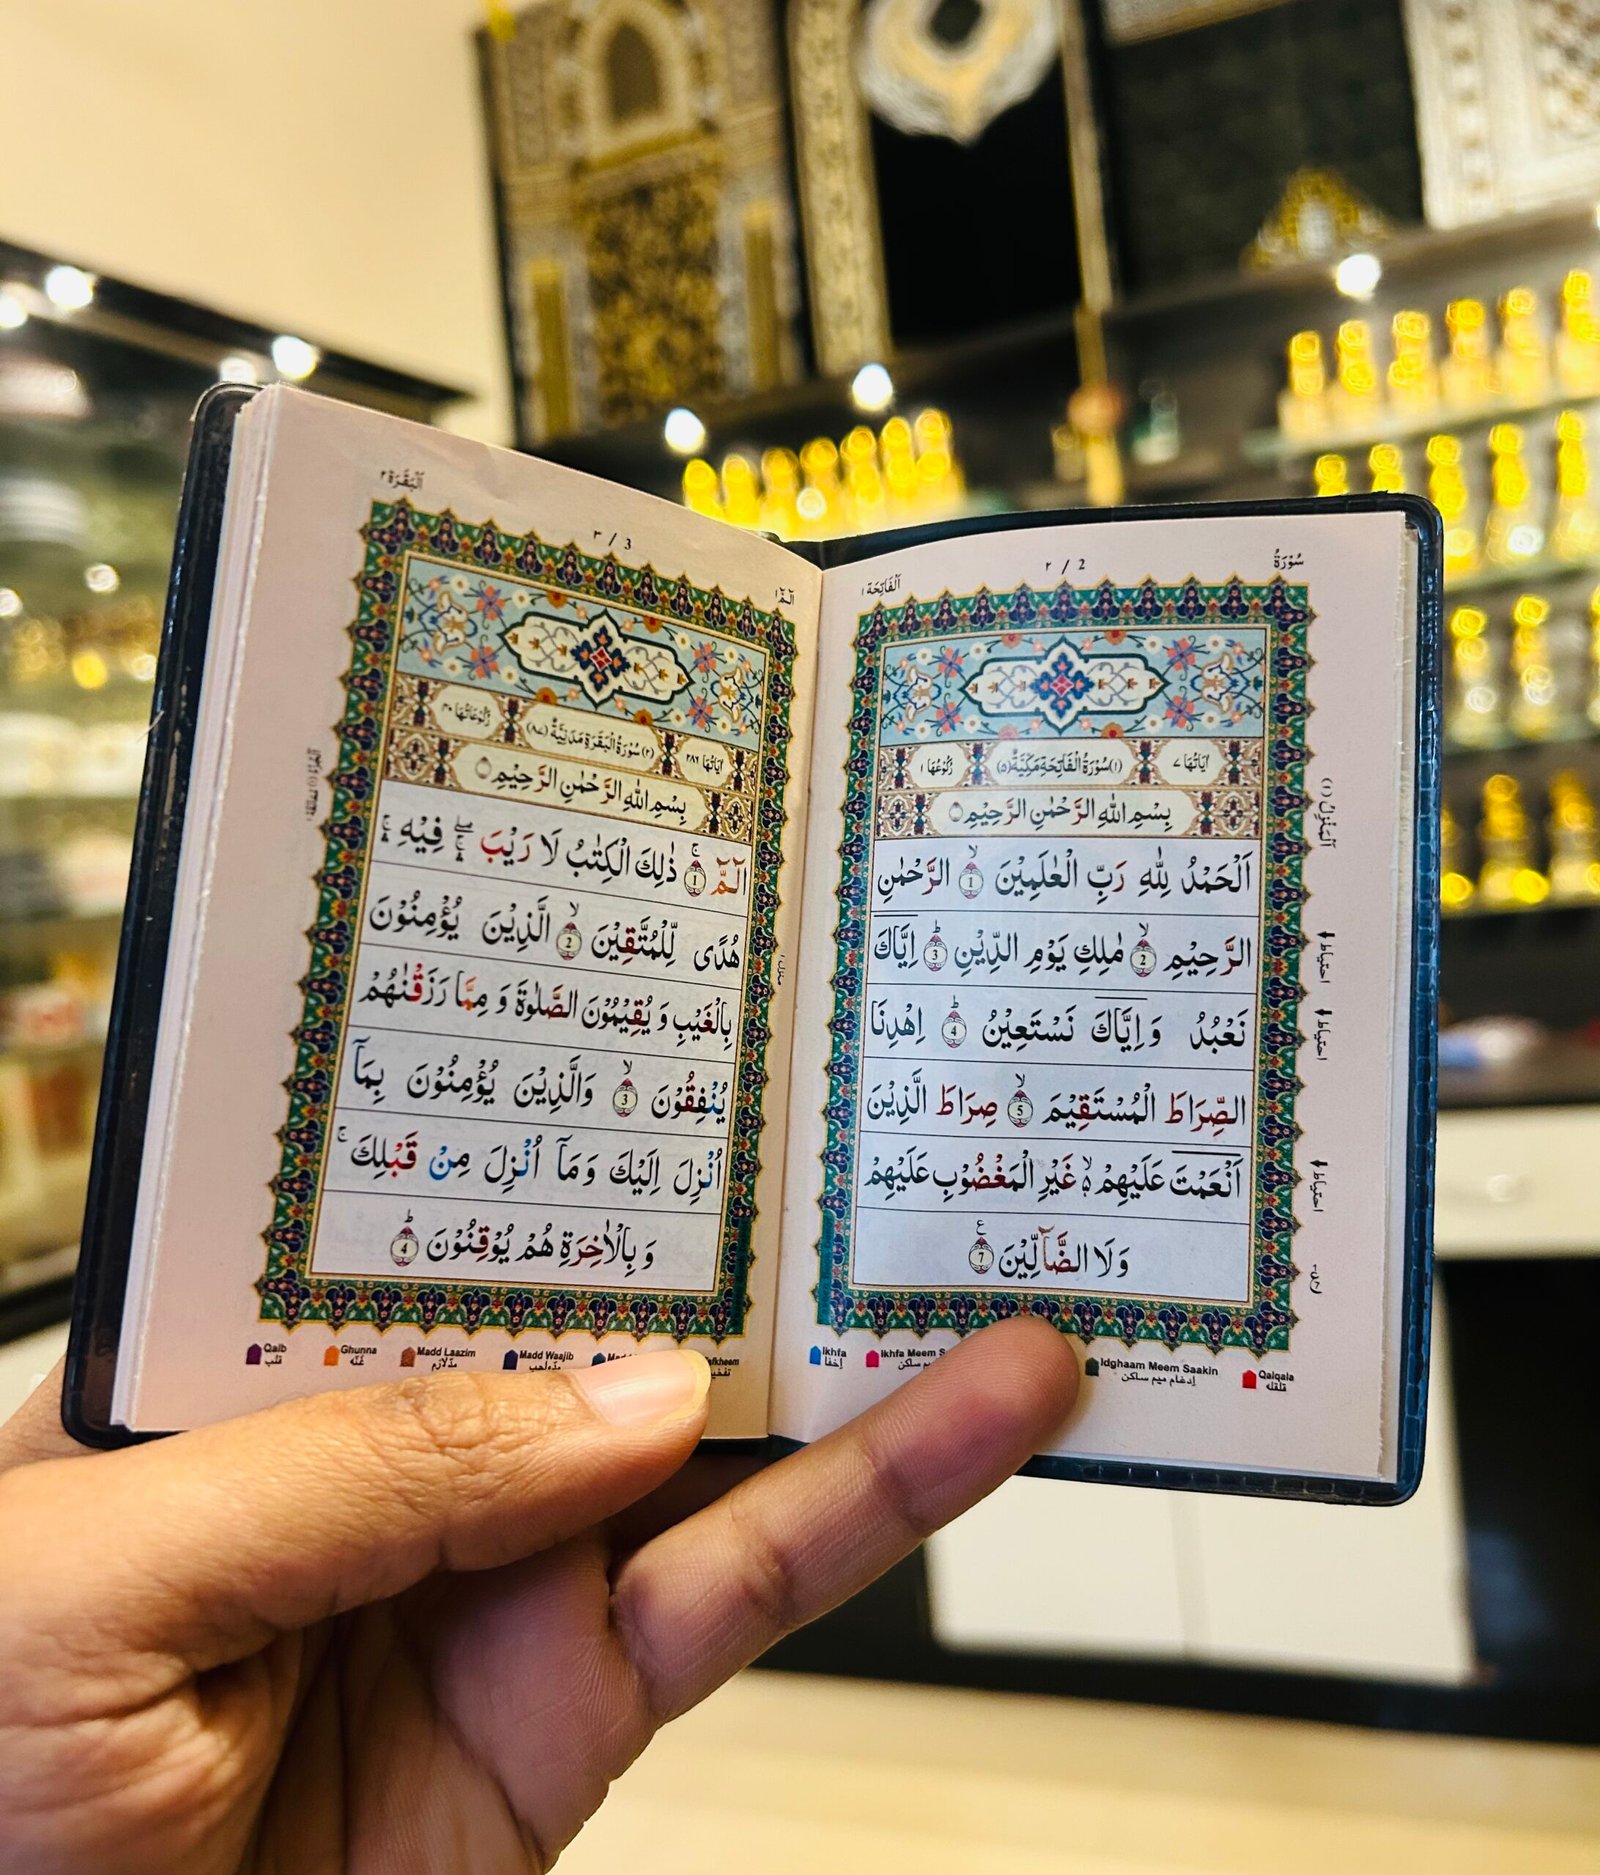 سُوْرَةُ
٢ / 2
اَلْفَاتِحَة ١
اٰيَاتُهَا ٧
(١) سُوْرَةُ الْفَاتِحَةِ مَكِّيَّةٌ (٥)
رُكُوْعُهَا ١
بِسْمِ اللّٰهِ الرَّحْمٰنِ الرَّحِيْمِ
اَلْحَمْدُ لِلّٰهِ رَبِّ الْعٰلَمِيْنَ ۙ 1 الرَّحْمٰنِ
الرَّحِيْمِ ۙ 2 مٰلِكِ يَوْمِ الدِّيْنِ ؕ 3 اِيَّاكَ
نَعْبُدُ وَ اِيَّاكَ نَسْتَعِيْنُ ؕ 4 اِهْدِنَا
الصِّرَاطَ الْمُسْتَقِيْمَ ۙ 5 صِرَاطَ الَّذِيْنَ
اَنْعَمْتَ عَلَيْهِمْ ۙ۬ غَيْرِ الْمَغْضُوْبِ عَلَيْهِمْ
وَلَا الضَّآلِّيْنَ 7 ع
اَلْمَنْزِلُ (١)
احتياط
احتياط
احتياط
Ikhfa
إخفا
Ikhfa Meem
ساكن
Idghaam Meem Saakin
إدغام ميم ساكن
Qalqala
قلقله
الٓمّٓ ١
٣ / 3
اَلْبَقَرَة ٢
اٰيَاتُهَا ٢٨٦
(٢) سُوْرَةُ الْبَقَرَةِ مَدَنِيَّةٌ (٨٧)
رُكُوْعَاتُهَا ٤٠
بِسْمِ اللّٰهِ الرَّحْمٰنِ الرَّحِيْمِ
الٓمّٓ ۚ 1 ذٰلِكَ الْكِتٰبُ لَا رَيْبَ ۛۖ فِيْهِ ۛۚ
هُدًى لِّلْمُتَّقِيْنَ ۙ 2 الَّذِيْنَ يُؤْمِنُوْنَ
بِالْغَيْبِ وَ يُقِيْمُوْنَ الصَّلٰوةَ وَ مِمَّا رَزَقْنٰهُمْ
يُنْفِقُوْنَ ۙ 3 وَالَّذِيْنَ يُؤْمِنُوْنَ بِمَآ
اُنْزِلَ اِلَيْكَ وَ مَآ اُنْزِلَ مِنْ قَبْلِكَ ۚ
وَ بِالْاٰخِرَةِ هُمْ يُوْقِنُوْنَ ؕ 4
منزل ١
Qalb
قلب
Ghunna
غنّه
Madd Laazim
مدّ لازم
Madd Waajib
مدّ واجب
Tafkheem